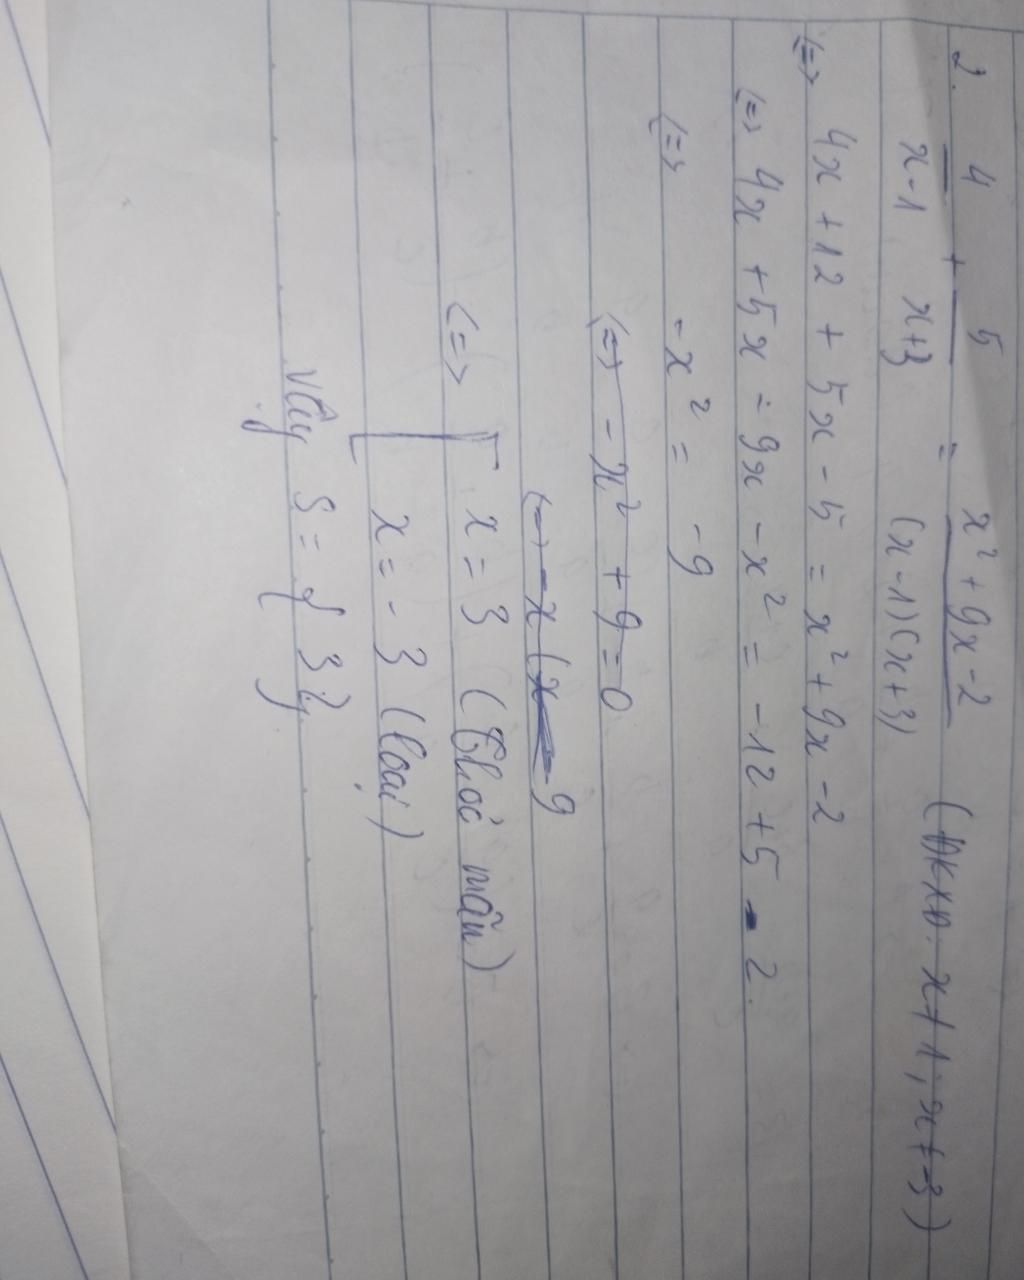 2. 4/(x-1) + 5/(x+3) = (x² + 9x - 2)/((x-1)(x+3)) (ĐKXĐ: x ≠ 1; x ≠ -3)
(=> 4x + 12 + 5x - 5 = x² + 9x - 2
(=> 4x + 5x = 9x - x² = -12 + 5 - 2.
(=> - x² = -9
(=> - x² + 9 = 0
<=> x = 3 (thoả mãn)
x = -3 (loại)
Vậy S = { 3 }